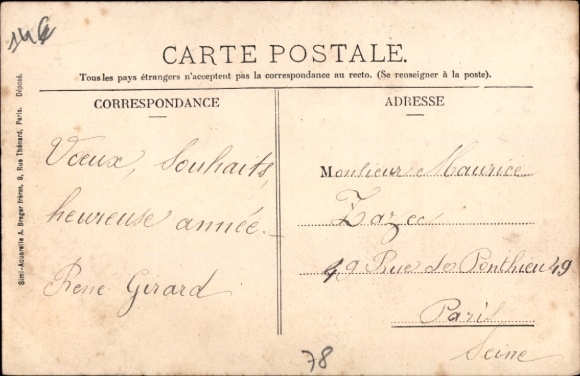 146
CARTE POSTALE.
Tous les pays étrangers n'acceptent pas la correspondance au recto. (Se renseigner à la poste).
CORRESPONDANCE
Vœux, Souhaits,
heureuse année.
René Girard
ADRESSE
Monsieur Maurice
Zazec
49 Rue de Ponthieu 49
Paris
Seine
78
Simi-Aquarelle A. Breger frères, 9, Rue Thénard, Paris. Déposé.